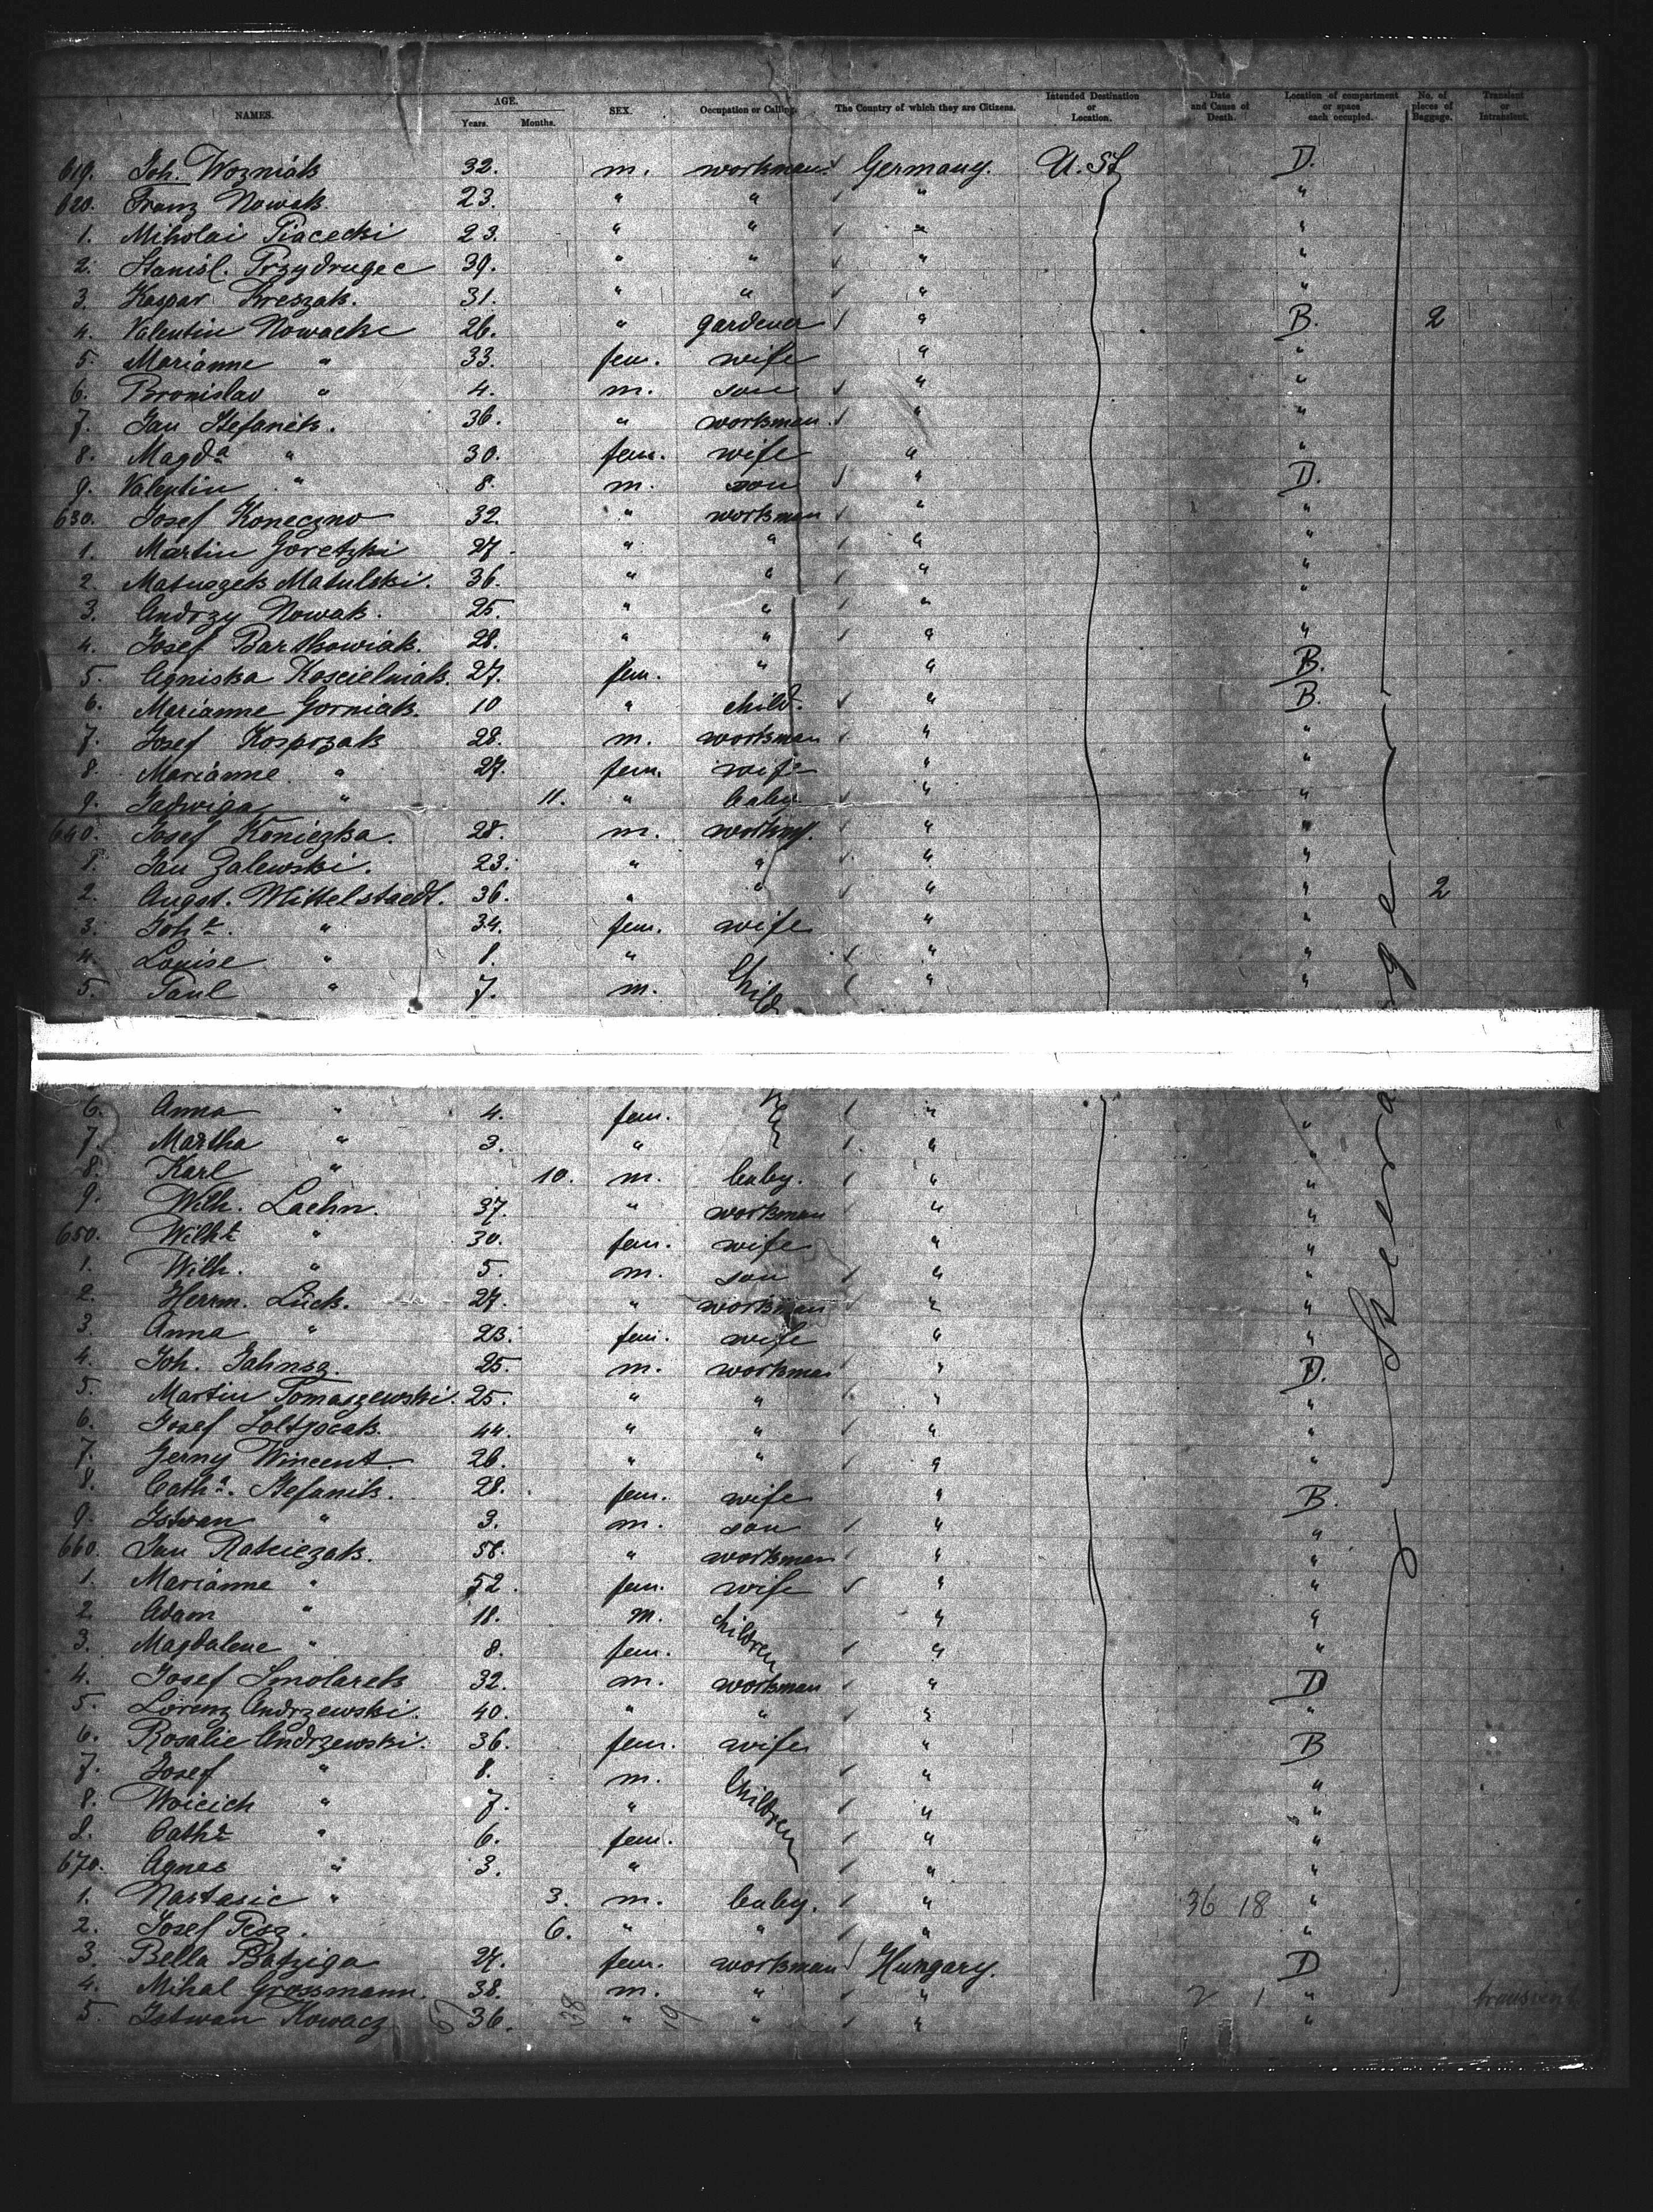 NAMES. AGE. Years. Months. SEX. Occupation or Calling. The Country of which they are Citizens. Intended Destination or Location. Date and Cause of Death. Location of compartment or space each occupied. No. of pieces of Baggage. Transient or Intransient.
619. Joh. Wozniak 32. m. workman Germany. U. St D.
620. Franz Nowak. 23. " " " "
1. Mikolai Piacecki 23. " " " "
2. Stanisl. Przydrugec 39. " " " "
3. Kaspar Kreszak. 31. " " " "
4. Valentin Nowacke 26. " gardener " B. 2
5. Marianne " 33. fem. wife " "
6. Bronislav " 4. m. son " "
7. Jan Stefanek. 36. " workman. " "
8. Magda " 30. fem. wife " "
9. Valentin " 8. m. son " D.
630. Josef Koneczno 32. " workman " "
1. Martin Goretzki 27. " " " "
2. Matuszek Matulski. 36. " " " "
3. Andrzy Nowak. 25. " " "
4. Josef Bartkowiak. 28. " " " "
5. Agniska Koscielniak. 27. fem. " " B.
6. Marianne Gorniak. 10 " child. " B.
7. Josef Kosprzak 28. m. workman " "
8. Marianne " 27. fem. wife " "
9. Jadwiga " 11. " baby " "
640. Josef Konieczka. 28. m. workm. " "
1. Jan Zalewski. 23. " " " "
2. Augst. Mittelstaedt. 36. " " " " 2
3. Joh.e " 34. fem. wife " "
4. Louise " 8. " " "
5. Paul " 7. m. Child " "
6. Anna " 4. fem. " "
7. Martha " 3. " " "
8. Karl " 10. m. baby. " "
9. Wilh. Laehn. 37. " workman " "
650. Wilh.e " 30. fem. wife " "
1. Wilh. " 5. m. son " "
2. Herrm. Lück. 27. " workman " "
3. Anna " 23. fem. wife " "
4. Joh. Jahnsz. 25. m. workman " D.
5. Martin Tomaszewski. 25. " " " "
6. Josef 44. " " " "
7. Jerny Wincent. 26. " " " "
8. Catha. Stefanik. 28. fem. wife " B.
9. Istvan " 3. m. son " "
660. Jan Ratziezak. 58. " workman " "
1. Marianne " 52. fem. wife " "
2. Adam " 11. m. Children " "
3. Magdalene " 8. fem. " "
4. Josef Smolarek 32. m. workman " D
5. Lorenz Andrzewski. 40. " " " "
6. Rosalie Andrzewski. 36. fem. wife " B
7. Josef " 8. m. Children " "
8. Woicich " 7. " " "
9. Cath.e " 6. fem. " "
670. Agnes " 3. " " "
1. Nastasie " 3. m. baby. " 36 18 "
2. Josef Pesz. 6. " " "
3. Bella Batziga 24. fem. workman Hungary. D
4. Mihal Grossmann. 38. m. " " 2 1 "
5. Istwan Kowacz 36. " " " "
Steerage